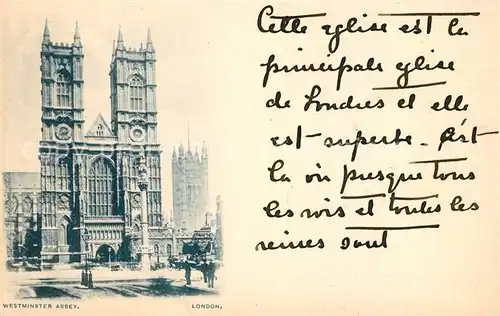 Cette eglise est la
principale eglise
de Londres et elle
est superbe. C'est
la ou presque tous
les rois et toutes les
reines sont
WESTMINSTER ABBEY. LONDON,